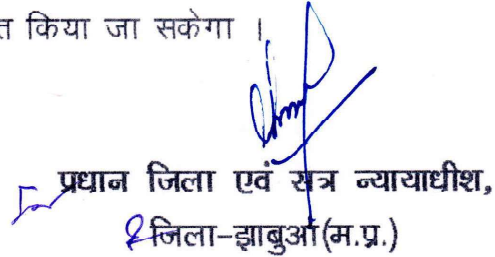 त किया जा सकेगा ।
प्रधान जिला एवं सत्र न्यायाधीश,
जिला-झाबुआ(म.प्र.)